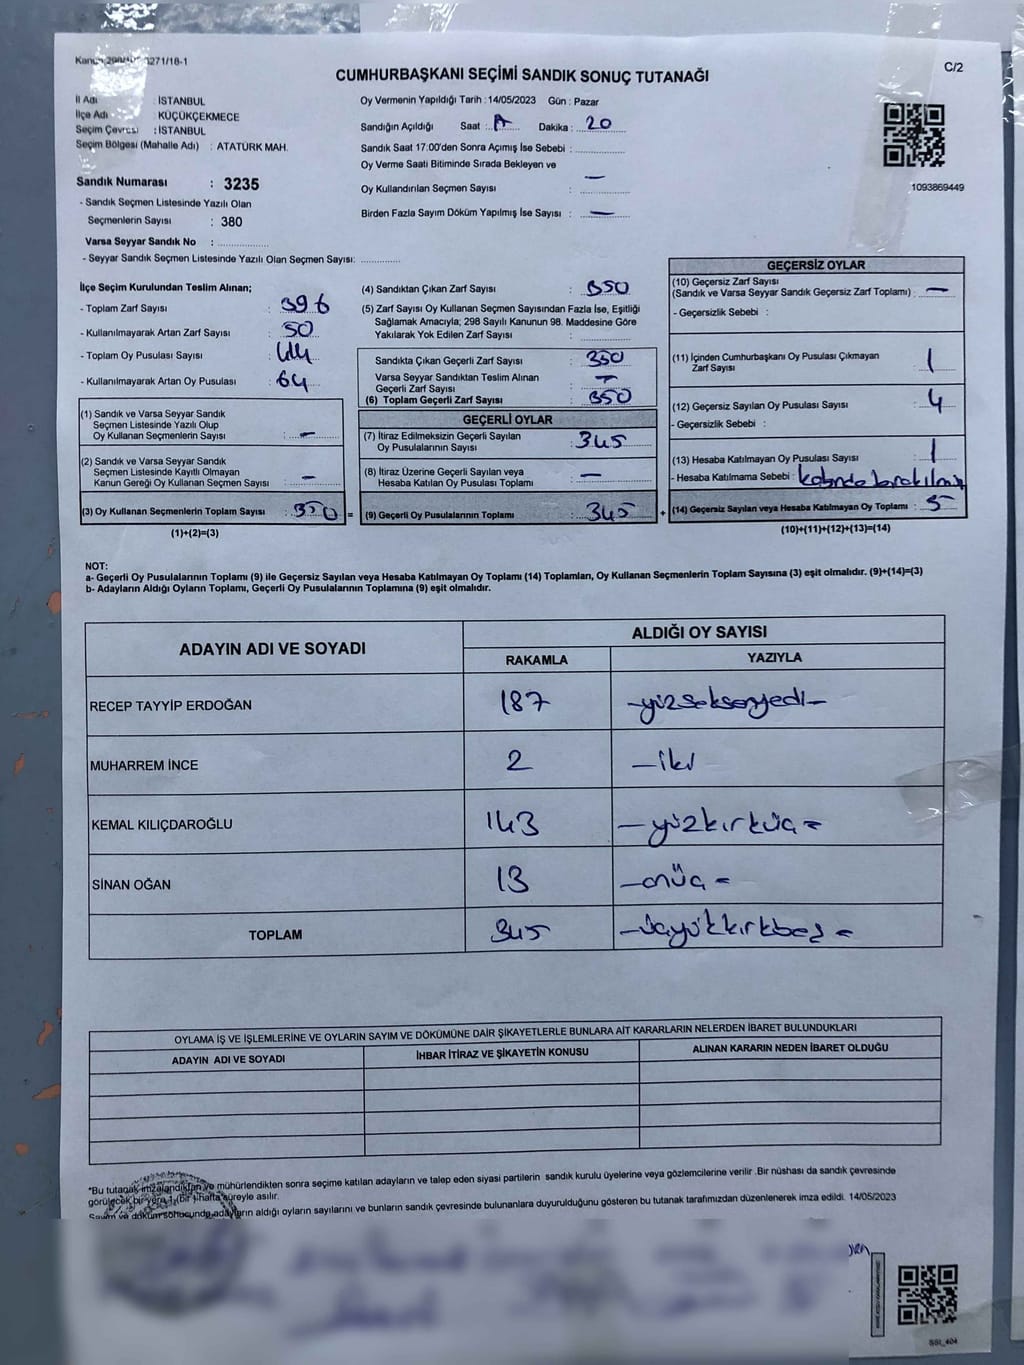 CUMHURBAŞKANI SEÇİMİ SANDIK SONUÇ TUTANAĞI
C/2
İl Adı : İSTANBUL
İlçe Adı : KÜÇÜKÇEKMECE
Seçim Çevresi : İSTANBUL
Seçim Bölgesi (Mahalle Adı) : ATATÜRK MAH.
Sandık Numarası : 3235
- Sandık Seçmen Listesinde Yazılı Olan
Seçmenlerin Sayısı : 380
Varsa Seyyar Sandık No :
- Seyyar Sandık Seçmen Listesinde Yazılı Olan Seçmen Sayısı:
Oy Vermenin Yapıldığı Tarih : 14/05/2023 Gün : Pazar
Sandığın Açıldığı Saat : Dakika : 20
Sandık Saat 17:00'den Sonra Açımış İse Sebebi :
Oy Verme Saati Bitiminde Sırada Bekleyen ve
Oy Kullandırılan Seçmen Sayısı : —
Birden Fazla Sayım Döküm Yapılmış İse Sayısı : —
1093869449
İlçe Seçim Kurulundan Teslim Alınan;
- Toplam Zarf Sayısı : 396
- Kullanılmayarak Artan Zarf Sayısı : 50
- Toplam Oy Pusulası Sayısı : 414
- Kullanılmayarak Artan Oy Pusulası : 64
(1) Sandık ve Varsa Seyyar Sandık
Seçmen Listesinde Yazılı Olup
Oy Kullanan Seçmenlerin Sayısı : —
(2) Sandık ve Varsa Seyyar Sandık
Seçmen Listesinde Kayıtlı Olmayan
Kanun Gereği Oy Kullanan Seçmen Sayısı : —
(3) Oy Kullanan Seçmenlerin Toplam Sayısı : 350 =
(1)+(2)=(3)
(4) Sandıktan Çıkan Zarf Sayısı : 350
(5) Zarf Sayısı Oy Kullanan Seçmen Sayısından Fazla İse, Eşitliği
Sağlamak Amacıyla; 298 Sayılı Kanunun 98. Maddesine Göre
Yakılarak Yok Edilen Zarf Sayısı :
Sandıkta Çıkan Geçerli Zarf Sayısı : 350
Varsa Seyyar Sandıktan Teslim Alınan
Geçerli Zarf Sayısı : —
(6) Toplam Geçerli Zarf Sayısı : 350
GEÇERLİ OYLAR
(7) İtiraz Edilmeksizin Geçerli Sayılan
Oy Pusulalarının Sayısı : 345
(8) İtiraz Üzerine Geçerli Sayılan veya
Hesaba Katılan Oy Pusulası Toplamı : —
(9) Geçerli Oy Pusulalarının Toplamı : 345 +
GEÇERSİZ OYLAR
(10) Geçersiz Zarf Sayısı
(Sandık ve Varsa Seyyar Sandık Geçersiz Zarf Toplamı) : —
- Geçersizlik Sebebi :
(11) İçinden Cumhurbaşkanı Oy Pusulası Çıkmayan
Zarf Sayısı : 1
(12) Geçersiz Sayılan Oy Pusulası Sayısı : 4
- Geçersizlik Sebebi :
(13) Hesaba Katılmayan Oy Pusulası Sayısı : 1
- Hesaba Katılmama Sebebi :
(14) Geçersiz Sayılan veya Hesaba Katılmayan Oy Toplamı : 5
(10)+(11)+(12)+(13)=(14)
NOT:
a- Geçerli Oy Pusulalarının Toplamı (9) ile Geçersiz Sayılan veya Hesaba Katılmayan Oy Toplamı (14) Toplamları, Oy Kullanan Seçmenlerin Toplam Sayısına (3) eşit olmalıdır. (9)+(14)=(3)
b- Adayların Aldığı Oyların Toplamı, Geçerli Oy Pusulalarının Toplamına (9) eşit olmalıdır.
ADAYIN ADI VE SOYADI
ALDIĞI OY SAYISI
RAKAMLA YAZIYLA
RECEP TAYYİP ERDOĞAN 187 -yüzseksenyedi-
MUHARREM İNCE 2 -iki
KEMAL KILIÇDAROĞLU 143 -yüzkırküç=
SİNAN OĞAN 13 -onüç=
TOPLAM 345
OYLAMA İŞ VE İŞLEMLERİNE VE OYLARIN SAYIM VE DÖKÜMÜNE DAİR ŞİKAYETLERLE BUNLARA AİT KARARLARIN NELERDEN İBARET BULUNDUKLARI
ADAYIN ADI VE SOYADI İHBAR İTİRAZ VE ŞİKAYETİN KONUSU ALINAN KARARIN NEDEN İBARET OLDUĞU
*Bu tutanak imzalandıktan ve mühürlendikten sonra seçime katılan adayların ve talep eden siyasi partilerin sandık kurulu üyelerine veya gözlemcilerine verilir .Bir nüshası da sandık çevresinde
görülecek bir yere 1 (bir) hafta süreyle asılır.
Sayım ve döküm sonucunda adayların aldığı oyların sayılarını ve bunların sandık çevresinde bulunanlara duyurulduğunu gösteren bu tutanak tarafımızdan düzenlenerek imza edildi. 14/05/2023